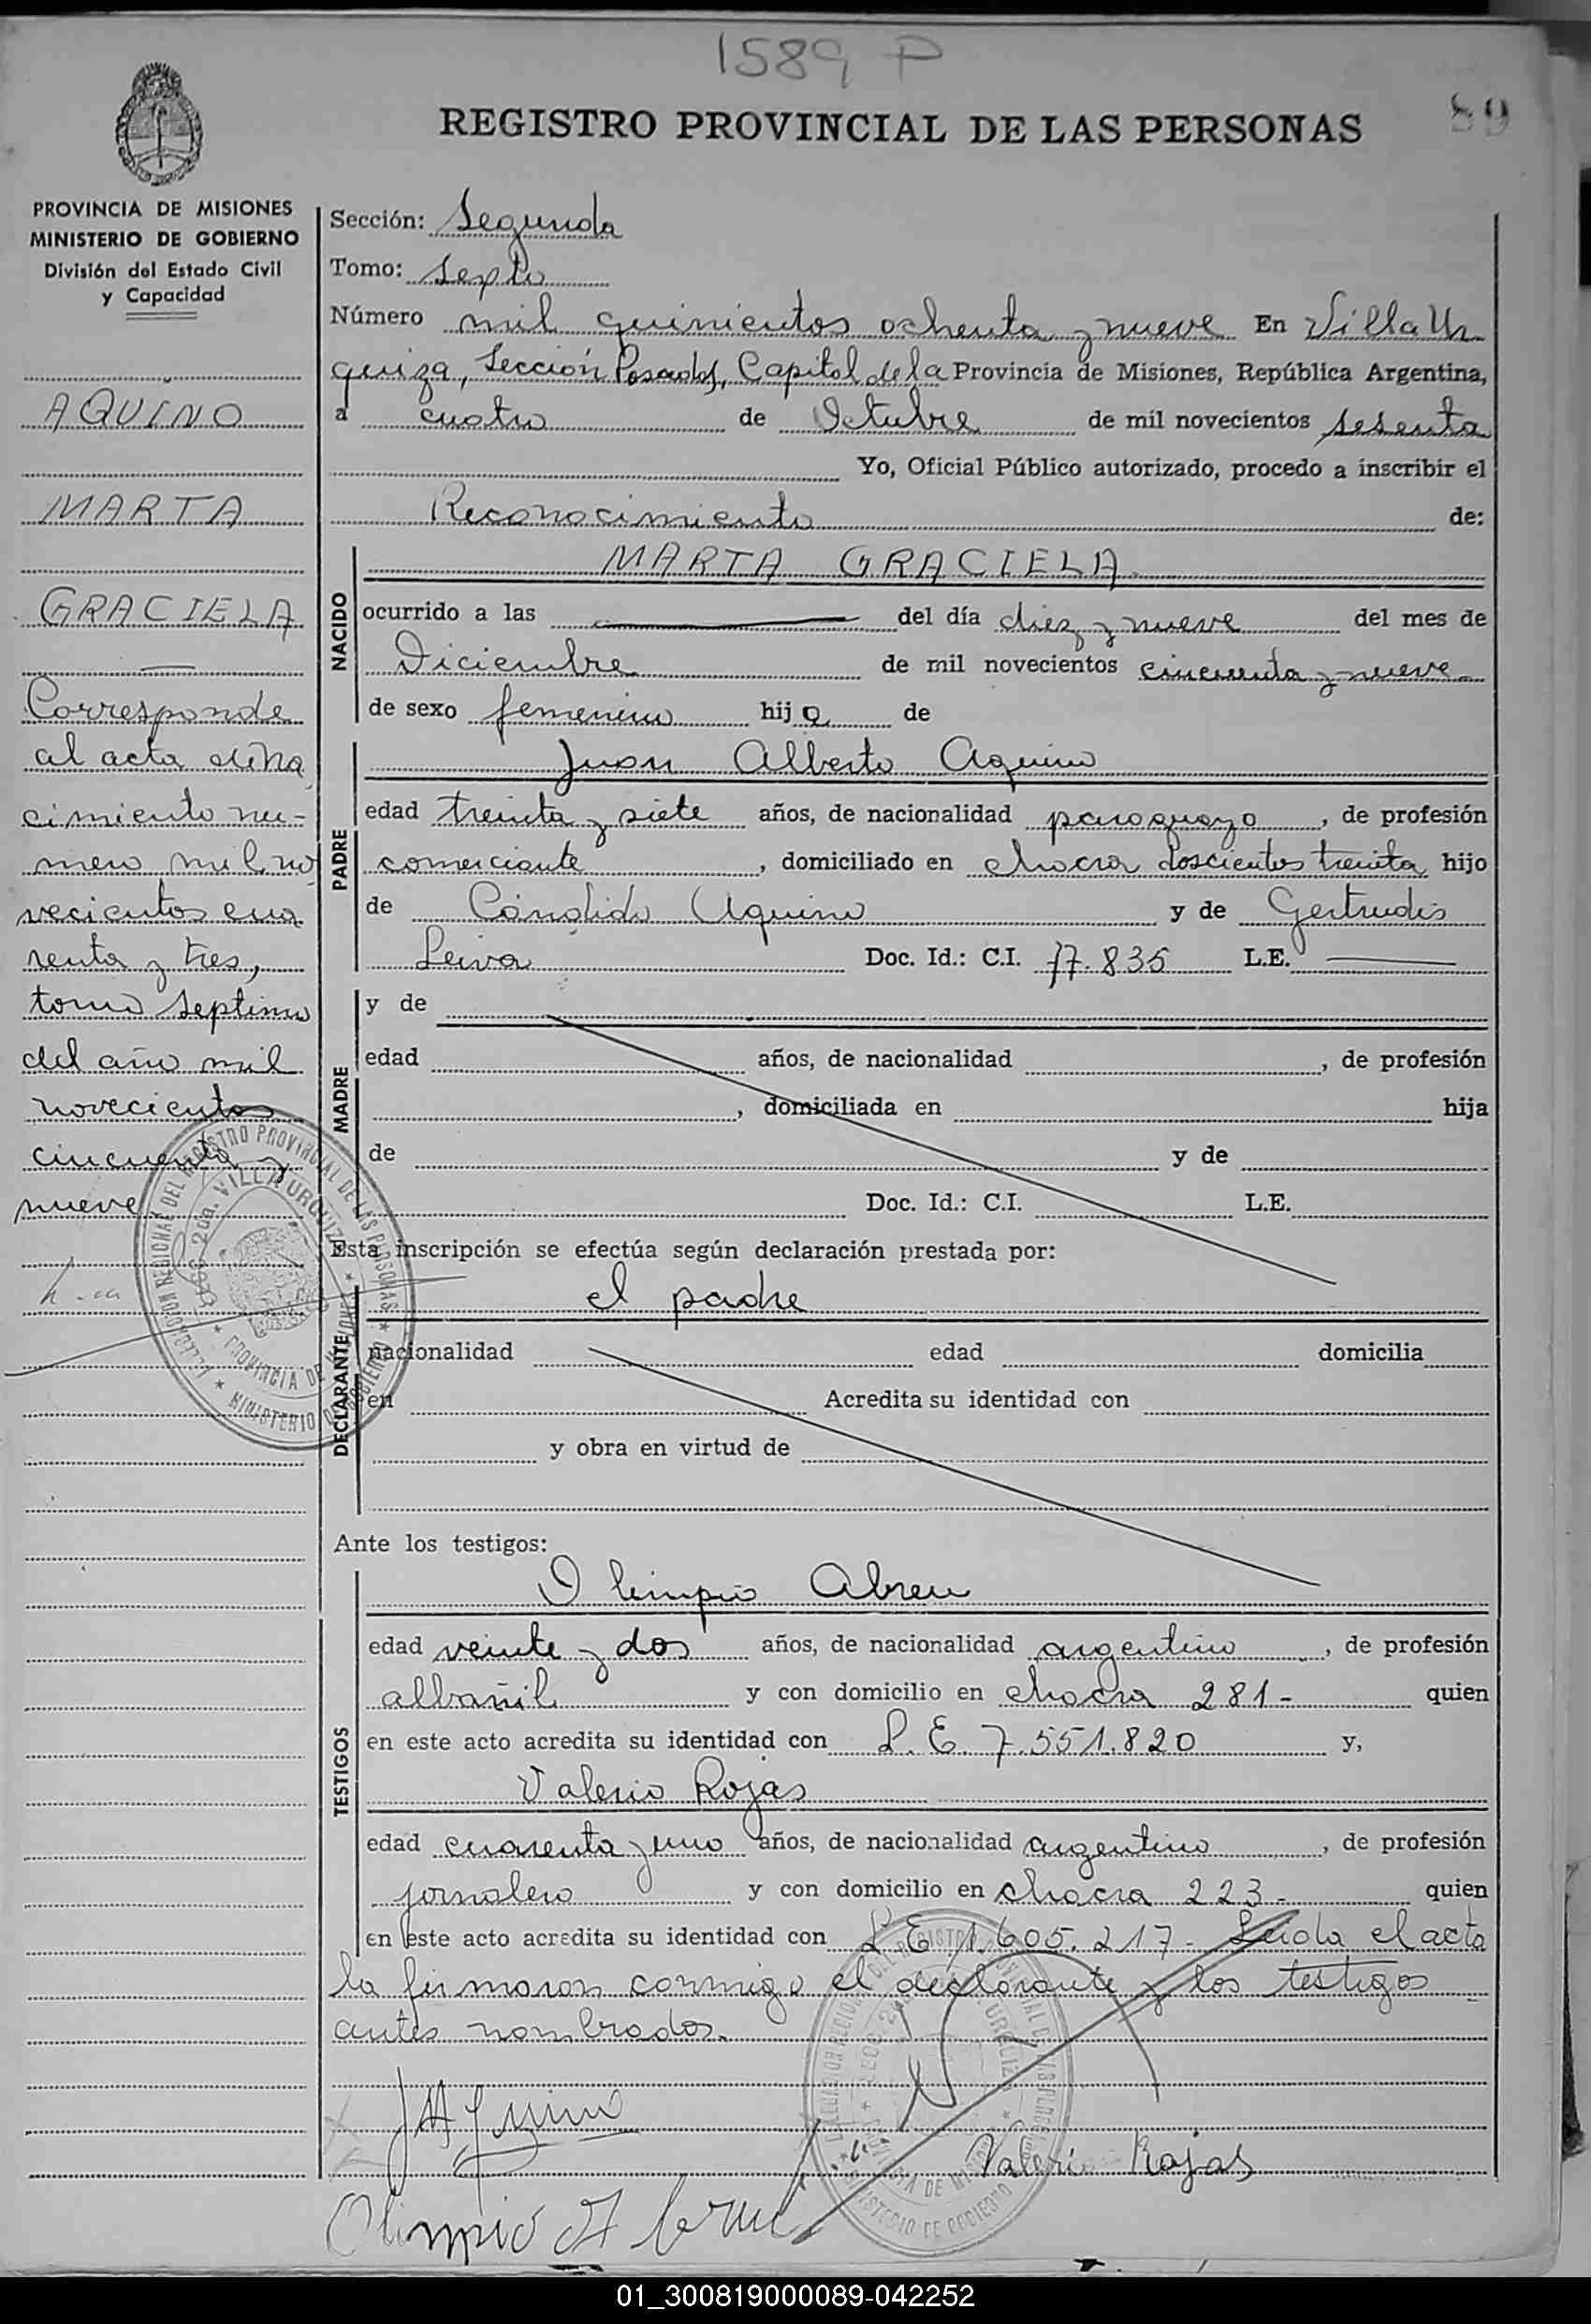 1589 P
89
REGISTRO PROVINCIAL DE LAS PERSONAS
PROVINCIA DE MISIONES
MINISTERIO DE GOBIERNO
División del Estado Civil
y Capacidad
AQUINO
MARTA
GRACIELA
Corresponde
al acta de na
cimiento nu-
mero mil no
vecientos cua
renta y tres,
tomo septimo
del año mil
novecientos
cincuenta y
nueve
Sección: Segunda
Tomo: Sexto
Número mil quinientos ochenta y nueve En Villa Ur
quiza, Sección Posadas, Capital de la Provincia de Misiones, República Argentina,
a cuatro de Octubre de mil novecientos sesenta
Yo, Oficial Público autorizado, procedo a inscribir el
Reconocimiento de:
NACIDO
MARTA GRACIELA
ocurrido a las del día diez y nueve del mes de
Diciembre de mil novecientos cincuenta y nueve
de sexo femenino hija de
PADRE
Juan Alberto Aquino
edad treinta y siete años, de nacionalidad paraguayo, de profesión
comerciante, domiciliado en chacra doscientos treinta hijo
de Cándido Aquino y de Gertrudis
Leiva Doc. Id.: C.I. 77.835 L.E.
MADRE
y de
edad años, de nacionalidad , de profesión
, domiciliada en hija
de y de
Doc. Id.: C.I. L.E.
Esta inscripción se efectúa según declaración prestada por:
DECLARANTE
el padre
nacionalidad edad domicilia
en Acredita su identidad con
y obra en virtud de
Ante los testigos:
TESTIGOS
Olimpio Abreu
edad veinte y dos años, de nacionalidad argentino, de profesión
albañil y con domicilio en chacra 281- quien
en este acto acredita su identidad con L.E. 7.551.820 y,
Valerio Rojas
edad cuarenta y uno años, de nacionalidad argentino, de profesión
jornalero y con domicilio en chacra 223- quien
en este acto acredita su identidad con L.E. 1.605.217- Leida el acta
la firmaron conmigo el declarante y los testigos
antes nombrados.
JAAquino
Valerio Rojas
Olimpio Abreu
DELEGACION REGIONAL DEL REGISTRO PROVINCIAL DE LAS PERSONAS
SECC. 2da. VILLA URQUIZA
PROVINCIA DE MISIONES
MINISTERIO DE GOBIERNO
01_300819000089-042252